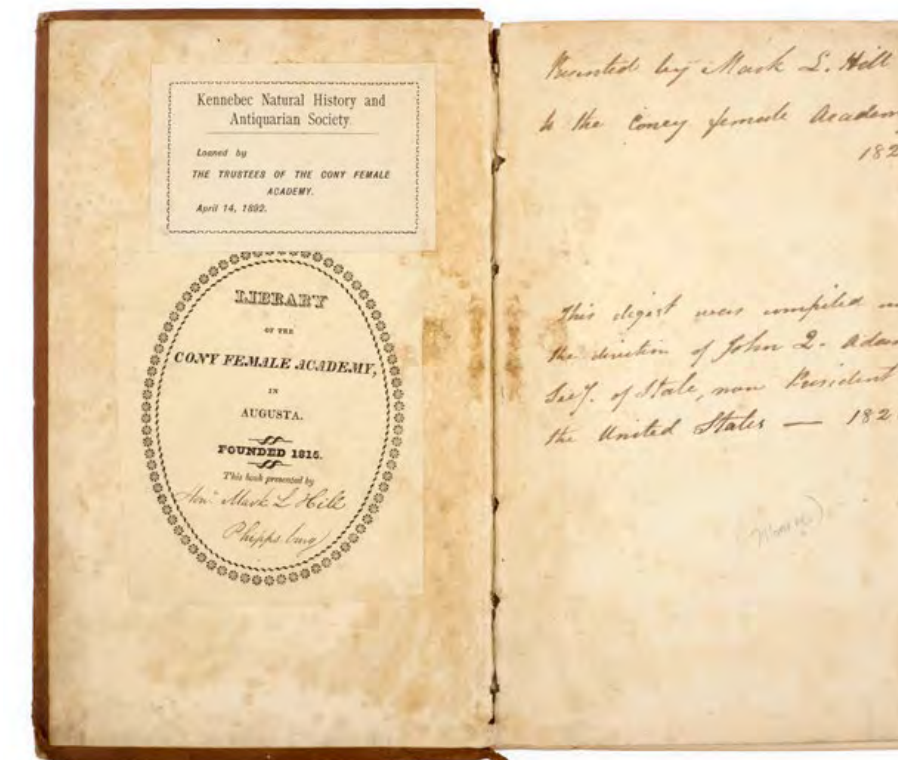 Kennebec Natural History and
Antiquarian Society
Loaned by
THE TRUSTEES OF THE CONY FEMALE
ACADEMY.
April 14, 1892.
LIBRARY
OF THE
CONY FEMALE ACADEMY,
IN
AUGUSTA.
FOUNDED 1815.
This book presented by
Hon. Mark L Hill
Phippsburg
Presented by Mark L. Hill
to the Coney female Academ
182
This digest was compiled
the direction of John Q. Adam
Secy. of State, now President
the United States — 182